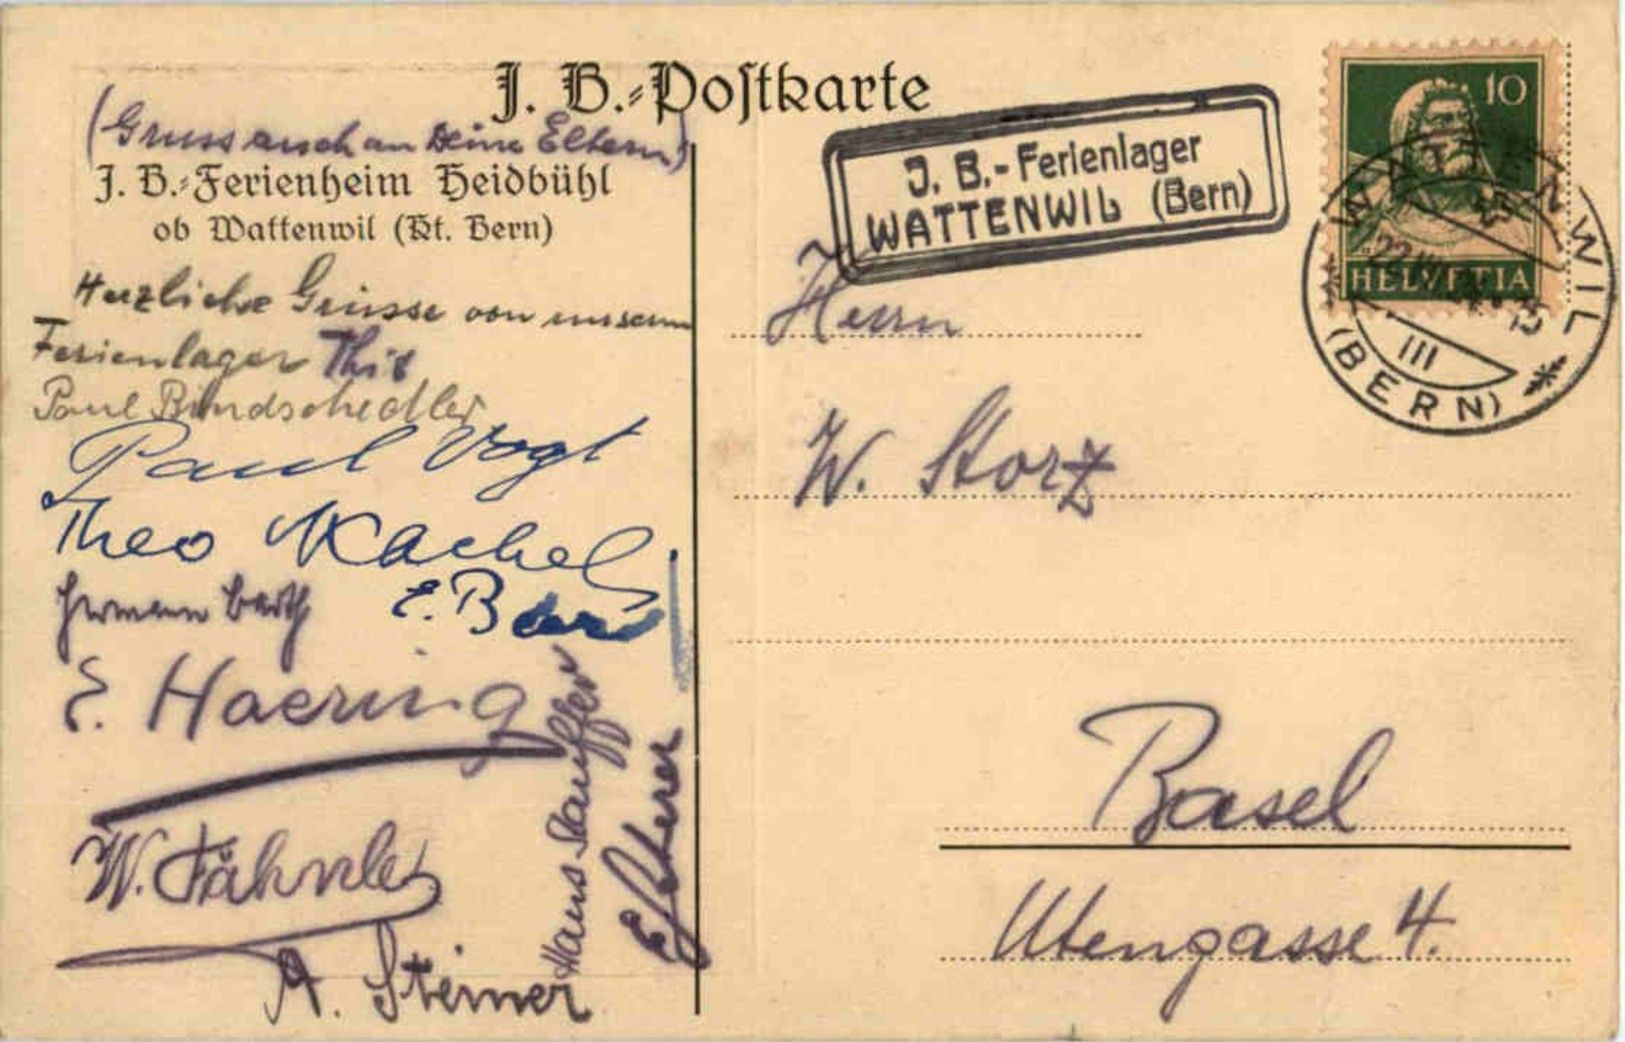 J. B.-Postkarte
(Gruss auch an Deine Eltern)
J. B.-Ferienheim Heidbühl
ob Wattenwil (Kt. Bern)
Herzliche Grüsse von unserm
Ferienlager This
Paul Bindschedler
Paul Vogt
Theo Kachel
Hermann Barth
E.
E. Haering
W. Fähnle
A. Steiner
Hans Stauffer
J. B.-Ferienlager
WATTENWIL (Bern)
10
HELVETIA
WATTENWIL
(BERN)
22
III
Herrn
W. Storz
Basel
Utengasse 4.